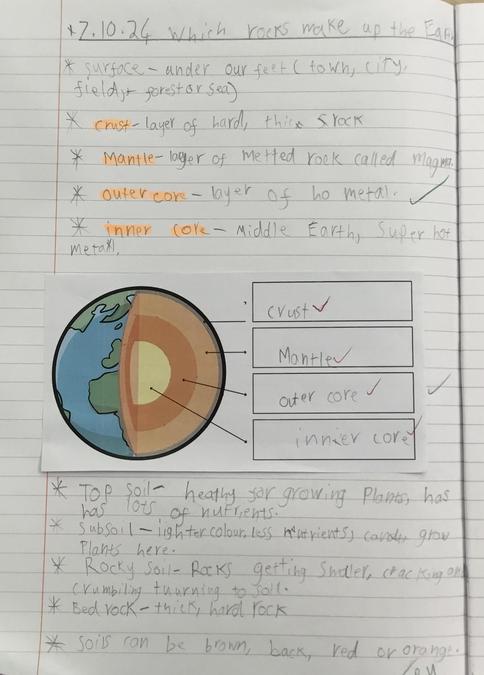 *7.10.24 Which rocks make up the Ear
* surface - under our feet ( town, city,
field, forest or sea)
* crust - layer of hard, thick rock
* Mantle - layer of metted rock called magma.
* outer core - layer of ho metal.
* inner core - Middle Earth, super hot
metal.
crust
Mantle
outer core
innier core
* Top soil - heathy for growing Plants, has
has lots of nutrients.
* Subsoil - lighter colour, less nutrients, grow
Plants here.
* Rocky soil - Rocks getting smaller, cracking
crumbiling tuurning to soil.
* Bed rock - thick, hard rock
* Soils can be brown, back, red or orange.